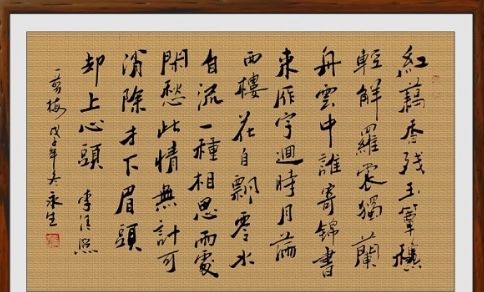 紅藕香残玉簟穐
輕解羅裳獨蘭
舟雲中誰寄錦書
來雁字迴時月滿
西樓 花自飄零水
自流一種相思兩處
閑愁此情無計可
消除才下眉頭
却上心頭 李清照
一剪梅 戊子年冬 永生